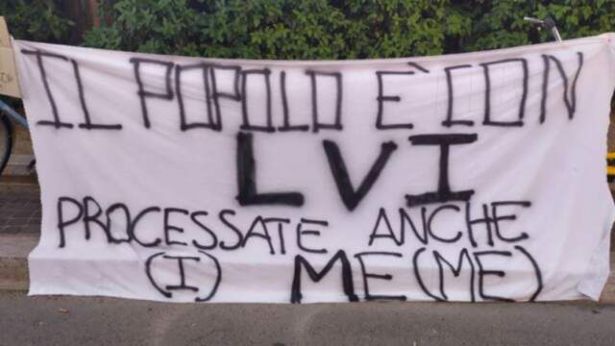 IL POPOLO E' CON
LVI
PROCESSATE ANCHE
(I) ME(ME)